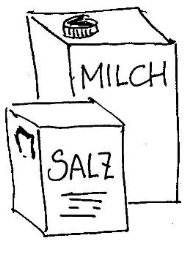 MILCH
SALZ